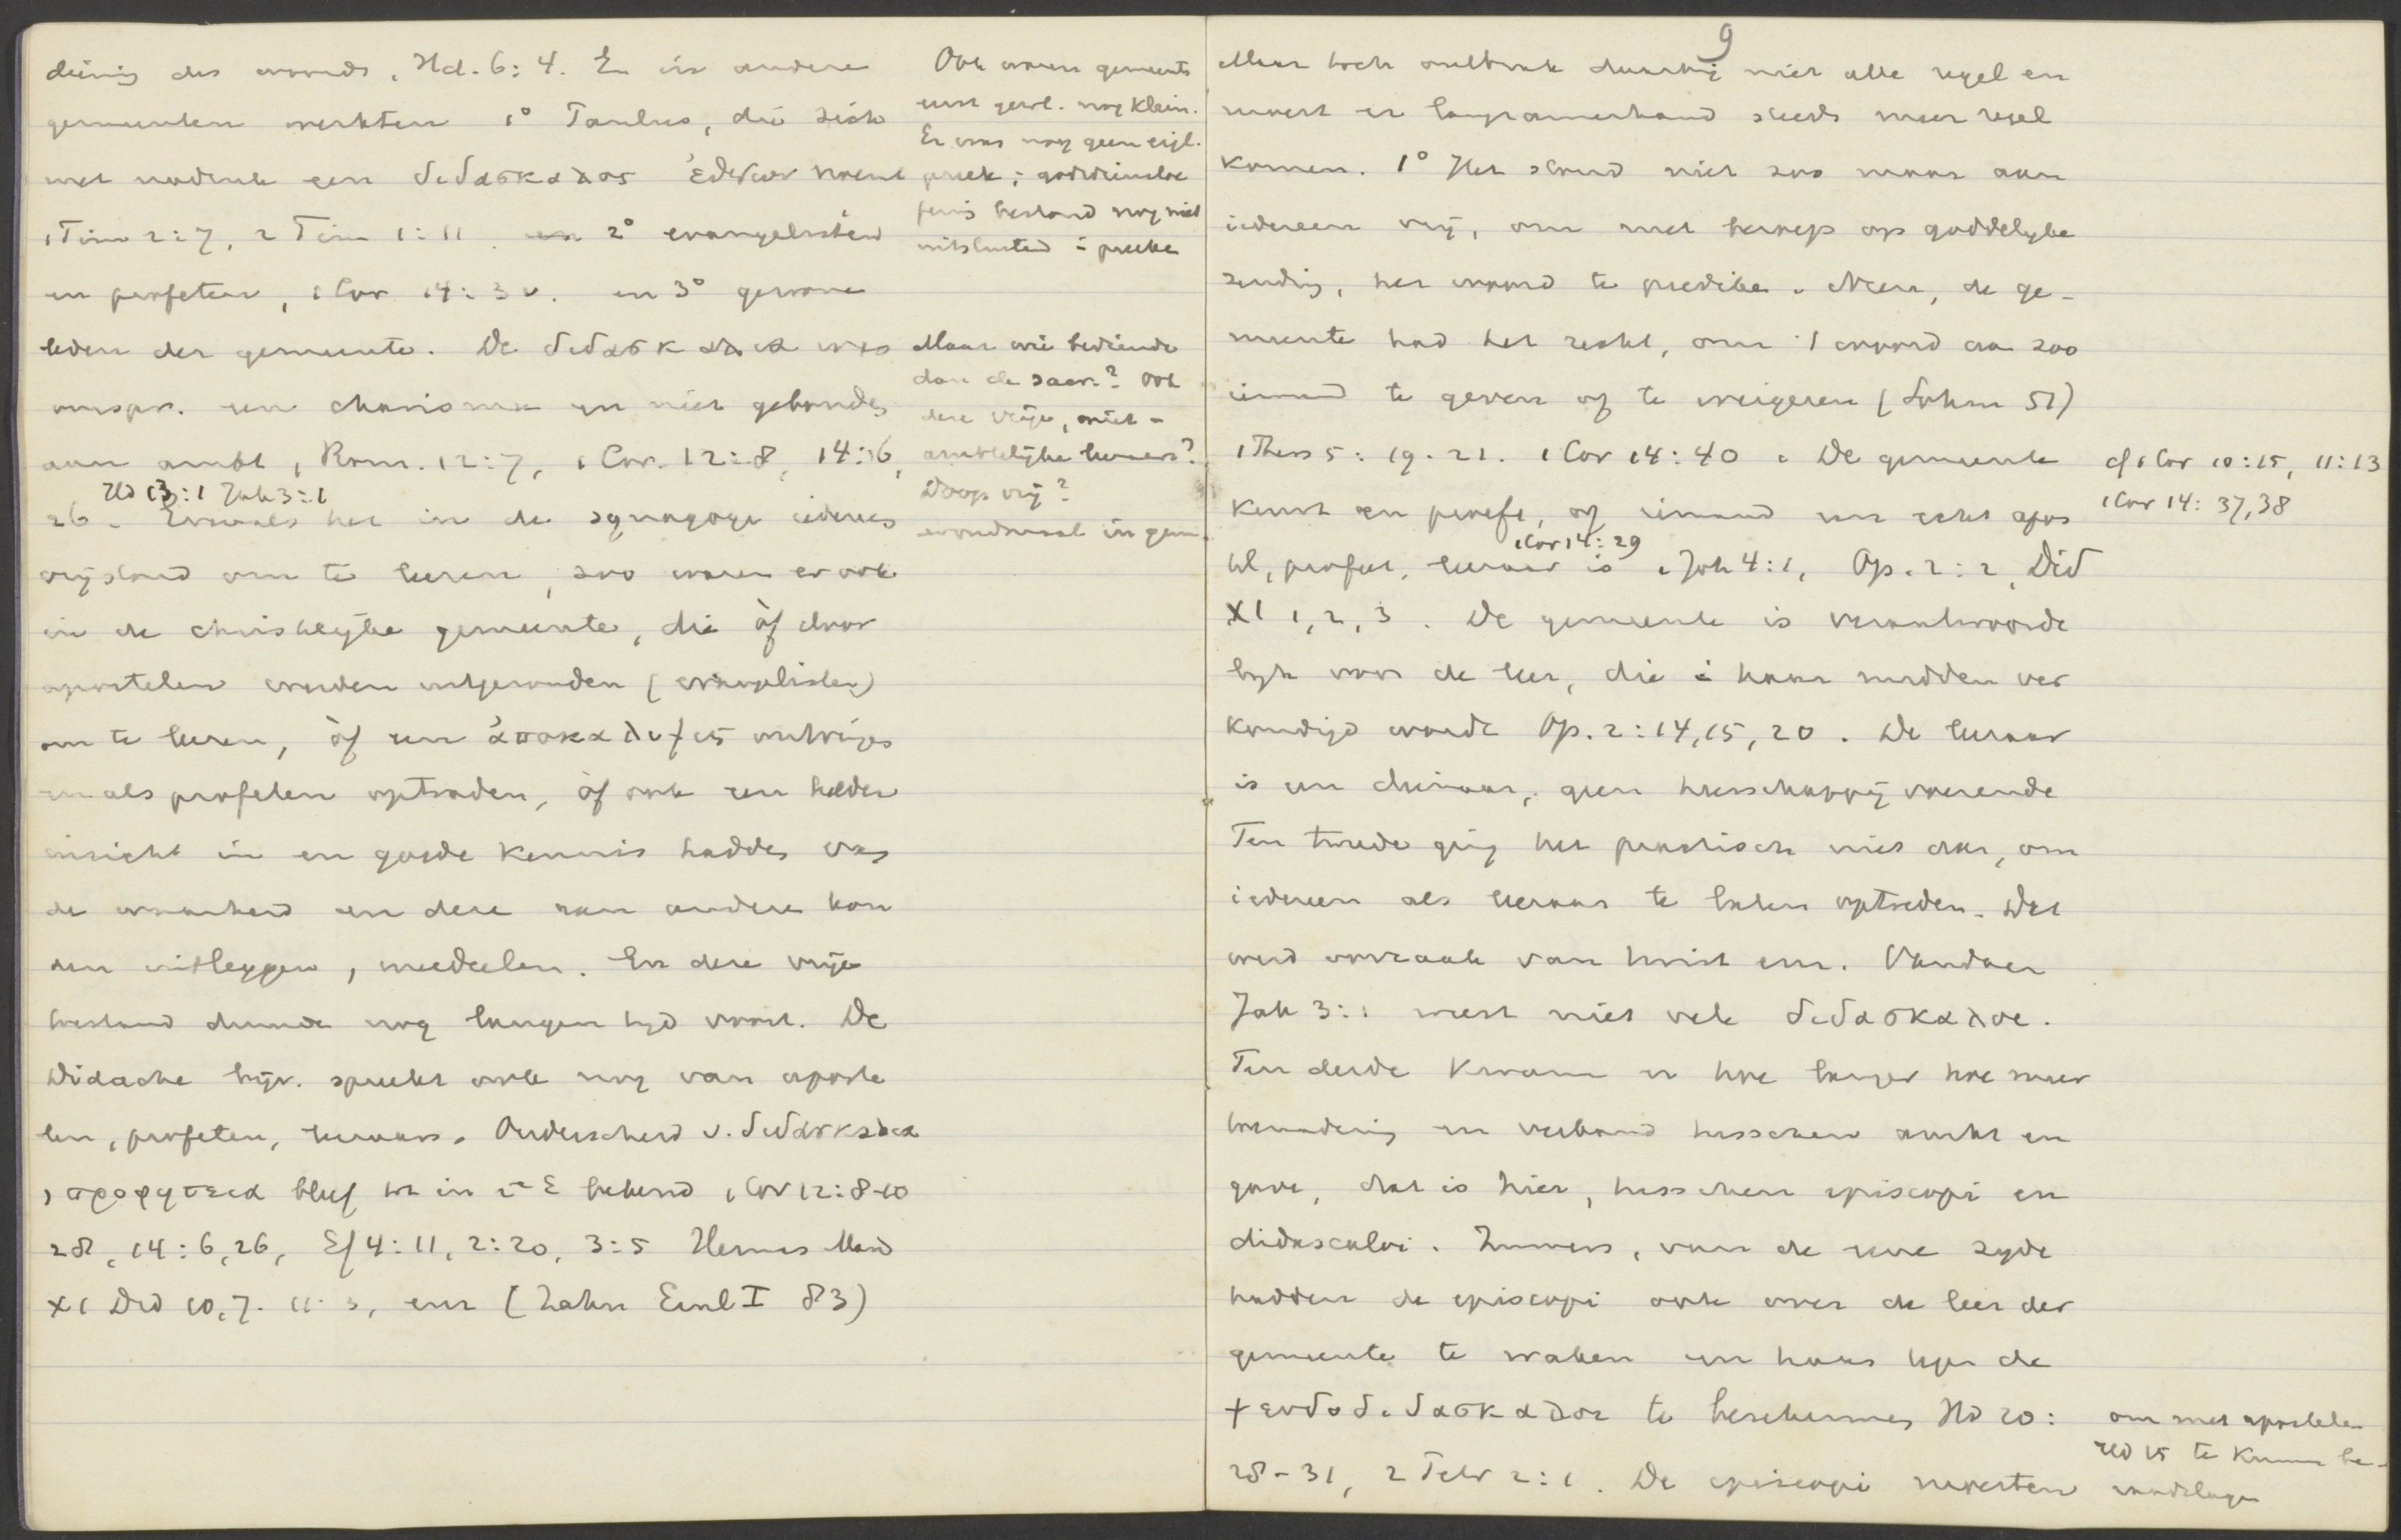 diening des woords, Hd. 6:4. En in andere
gemeenten werkten 1° Paulus, die zich
met nadruk een διδασκαλος ἐθνων noemt
1 Tim 2:7, 2 Tim 1:11. en 2° evangelisten
en profeten, 1 Cor 14:3 v. en 3° gewone
leden der gemeente. De διδασκαλια was
oorspr. een charisma en niet gebonden
aan ambt, Rom. 12:7, 1 Cor. 12:8, 14:6,
Hd 13:1 Jak 3:1
26. Evenals het in de synagoge iedereen
vrijstond om te leeren, zoo waren er ook
in de christelijke gemeente, die òf door
apostelen werden uitgezonden (evangelisten)
om te leeren, òf een ἀποκαλυψις ontvingen
en als profeten optraden, òf ook een helder
inzicht in en goede kennis hadden van
de waarheid en deze aan andere kon
den uitleggen, meedeelen. En deze vrije
toestand duurde nog langen tijd voort. De
Didache bijv. spreekt ook nog van aposte
len, profeten, leeraars. Onderscheid v. διδασκαλια
, προφητεια bleef tot in 2e E bekend 1 Cor 12:8-10
28, 14:6, 26, Ef 4:11, 2:20, 3:5 Hermas Mand
XI Did 10,7. 11:3, enz (Zahn Einl I 83)
Ook waren gemeents
eerst gew. nog klein.
Er was nog geen eigl.
preek; godsdienstoe
fening bestond nog niet
uitsluitend in preeke
Maar wie bediende
dan de sacr.? Ook
deze vrije, niet-
ambtelijke leeraars?
Doop vrij?
avondmaal in gem.
9
Maar toch ontbrak daarbij niet alle regel en
moest er langzamerhand steeds meer regel
komen. 1° Het stond niet zoo maar aan
iedereen vrij, om met beroep op goddelyke
zending, het woord te prediken. Neen, de ge-
meente had het recht, om 't woord aan zoo
iemand te geven of te weigeren (Sohm 51)
1 Thess 5:19-21. 1 Cor 14:40. De gemeente
keurt en proeft, of iemand een echt apos
1 Cor 14:29
tel, profeet, leeraar is 1 Joh 4:1, Op. 2:2, Did
XI 1, 2, 3. De gemeente is verantwoorde
lyk voor de leer, die in haar midden ver
kondigd wordt Op. 2:14, 15, 20. De leeraar
is een dienaar, geen heerschappij voerende
Ten tweede ging het praktisch niet aan, om
iedereen als leeraar te laten optreden. Dat
werd oorzaak van twist enz. Vandaar
Jak 3:1 weest niet vele διδασκαλοι.
Ten derde kwam er hoe langer hoe meer
toenadering en verband tusschen ambt en
gave, dat is hier, tusschen episcopi en
didascaloi. Immers, van de eene zyde
hadden de episcopi ook over de leer der
gemeente te waken en haar tegen de
ψευδοδιδασκαλοι te beschermen Hd 20:
28-31, 2 Petr 2:1. De episcopi moesten
cf 1 Cor 10:15, 11:13
1 Cor 14:37,38
om met apostelen
Hd 15 te kunnen be-
raadslagen